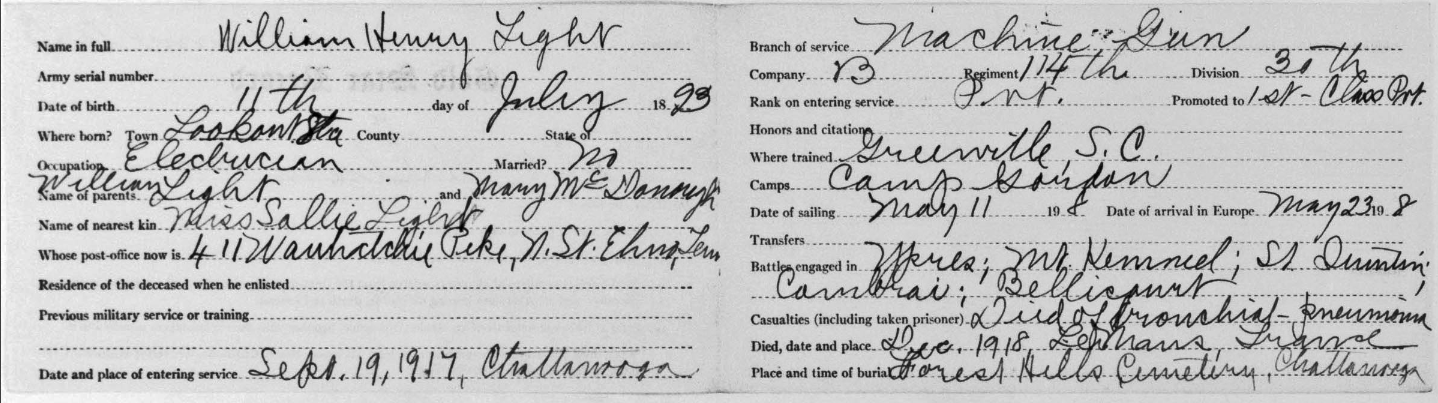 Name in full William Henry Light
Army serial number
Date of birth 11th day of July 1893
Where born? Town Lookout Mtn County State of
Occupation Electrician Married? No
Name of parents William Light and Mary McDonough
Name of nearest kin Miss Sallie Light
Whose post-office now is 411 Wauhatchie Pike, N. St. Elmo, Tenn
Residence of the deceased when he enlisted
Previous military service or training
Date and place of entering service Sept. 19, 1917, Chattanooga
Branch of service Machine Gun
Company B Regiment 114th Division 30th
Rank on entering service Pvt. Promoted to 1st-Class Pvt.
Honors and citations
Where trained Greenville, S.C.
Camps Camp Gordon
Date of sailing May 11 1918 Date of arrival in Europe May 23 1918
Transfers
Battles engaged in Ypres; Mt. Kemmel; St Quintin;
Cambrai; Bellicourt
Casualties (including taken prisoner) Died of bronchial-pneumonia
Died, date and place Dec. 1918 LeMans, France
Place and time of burial Forest Hills Cemetery, Chattanooga